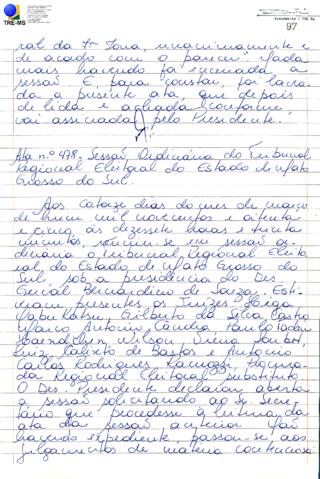 TRE-MS
97
ral da 7ª Zona, unanimemente e
de acordo com o parecer". Nada
mais havendo foi encerrada a
sessão. E, para constar, foi lavra-
da a presente ata, que depois
de lida e achada conforme
vai assinada pelo Presidente.
Ata n.º 478. Sessão Ordinária do Tribunal
Regional Eleitoral do Estado de Mato
Grosso do Sul.
Aos catorze dias do mês de março
de hum mil novecentos e oitenta
e cinco, às dezessete horas e trinta
minutos, reuniu-se em sessão or-
dinária o Tribunal Regional Eleito-
ral do Estado de Mato Grosso do
Sul, sob a presidência do Des.
Genival Bernardino de Souza. Esti-
veram presentes os Juízes
Nabukatsu, Gilberto da Silva Castro
Marco Antonio Cândia, Paulo Tadeu
Haendchen, Wilson Vieira Loubet,
Luiz Calixto de Bastos e Antonio
Carlos Rodrigues, Procura-
dor Regional Eleitoral Substituto.
O Des. Presidente declarou aberta
a sessão solicitando ao Sr. Secre-
tário que procedesse à leitura da
ata da sessão anterior. Não
havendo expediente, passou-se aos
julgamentos de matéria contenciosa: